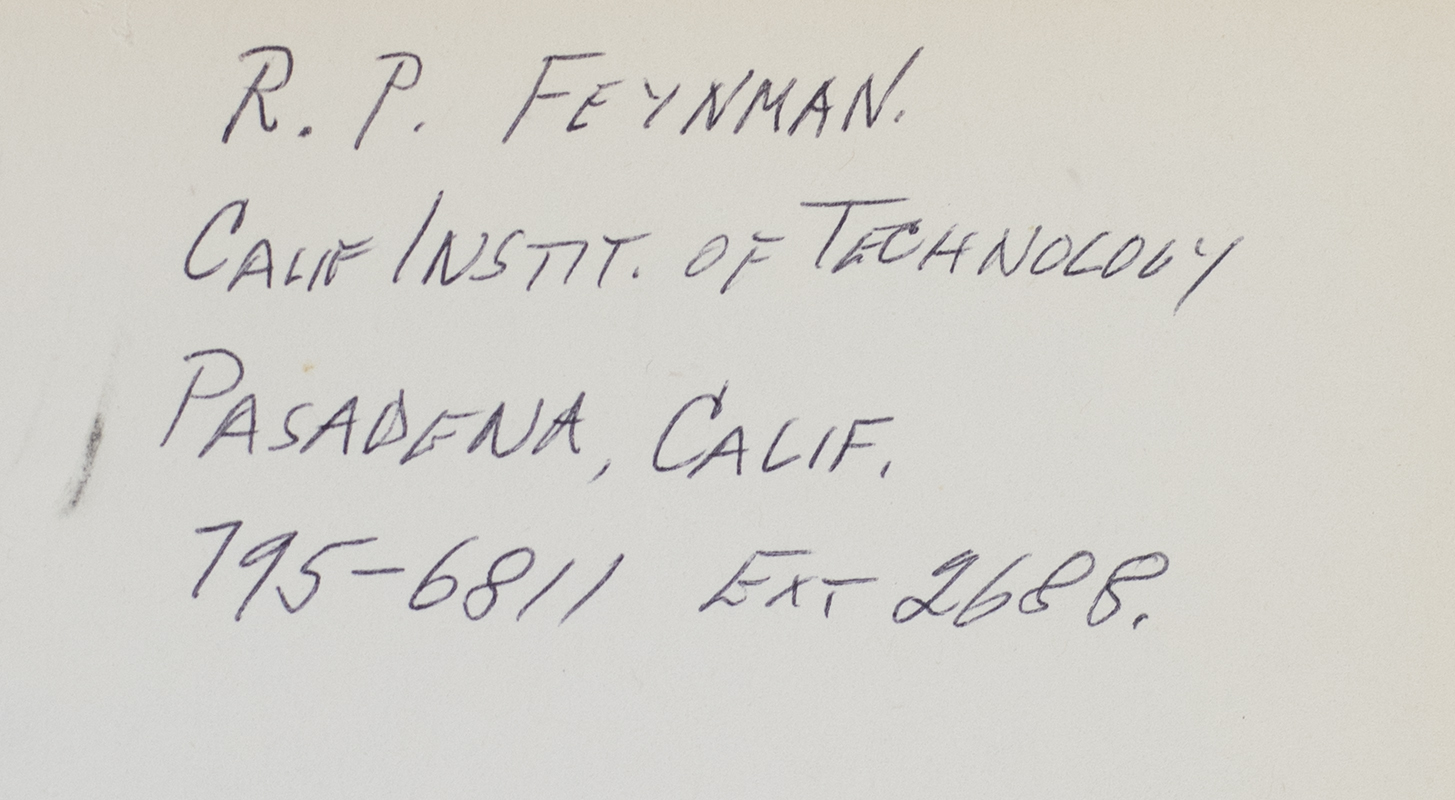 R. P. FEYNMAN.
CALIF INSTIT. OF TECHNOLOGY
PASADENA, CALIF.
795-6811 EXT 2688.